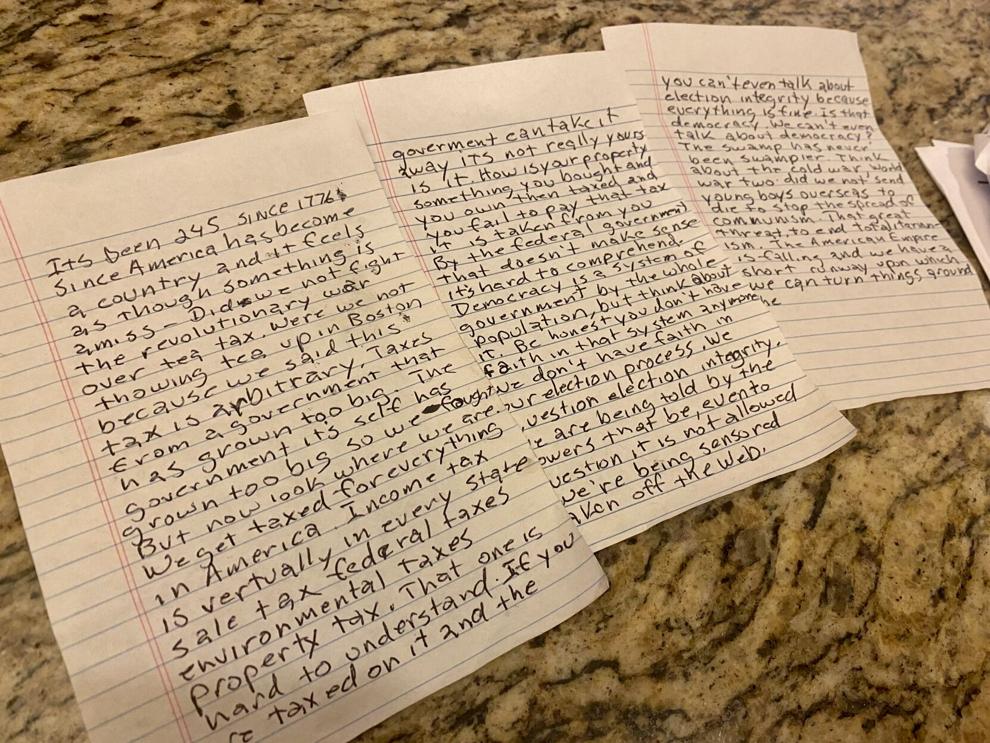 Its been 245 since 1776
since America has become
a country and it feels
as though something is
amiss - Did we not fight
the revolutionary war
over tea tax. were we not
thowing tea up in Boston
because we said this
tax is arbitrary, Taxes
from a government that
has grown too big. The
government it's self has
grown too big so we fought
But now look where we are.
We get taxed for everything
in America. Income tax
is vertually in every state
sale tax federal taxes
environmental taxes
property tax. That one is
hard to understand. If you
taxed on it and the
goverment can take it
away ITS not really yours
is it. How is your property
something you bought and
you own then taxed and
you fail to pay that tax
it is taken from you
By the federal government
that doesn't make sense
it's hard to comprehend.
Democracy is a system of
government by the whole
population, but think about
it. Be honest you don't have
faith in that system anymore
we don't have faith in
our election process. We
question election integrity.
we are being told by the
powers that be, even to
question it is not allowed
we're being sensored
taken off the web.
you can't even talk about
election integrity because
everything is fine. Is that
democracy. We can't even
talk about democracy?
The swamp has never
been swampier. Think
about the cold war, World
war two. did we not send
young boys overseas to
die to stop the spread of
communism. That great
threat to end totalitarian-
ism. The American Empire
is falling and we have a
short runway upon which
we can turn things around